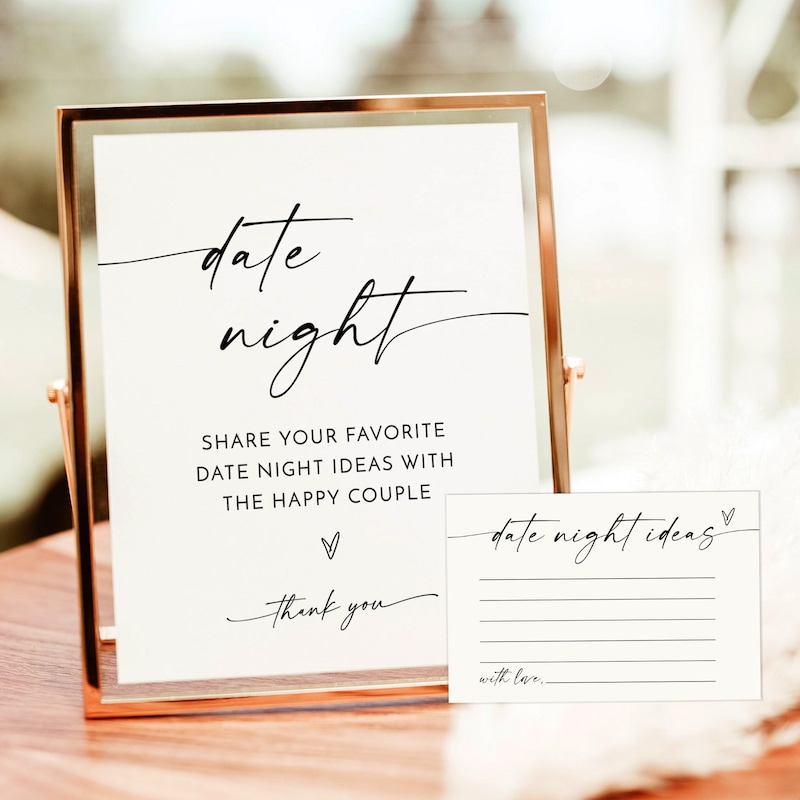 date
night
SHARE YOUR FAVORITE
DATE NIGHT IDEAS WITH
THE HAPPY COUPLE
thank you
date night ideas
with love,